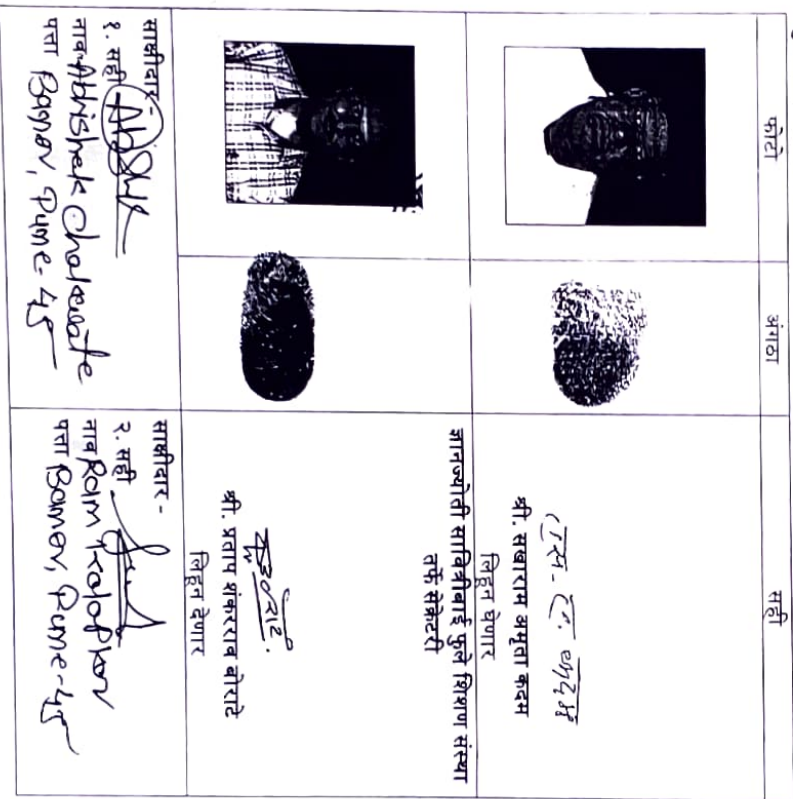 फोटो
अंगठा
सही
स. अ. कदम
श्री. सखाराम अमृता कदम
लिहून घेणार
ज्ञानज्योती सावित्रीबाई फुले शिक्षण संस्था
तर्फे सेक्रेटरी
श्री. प्रताप शंकरराव बोराटे
लिहून देणार
साक्षीदार -
१. सही
नाव Abhishek Chakewate
पत्ता Baner, Pune-45
साक्षीदार -
२. सही
नाव Ram
पत्ता Baner, Pune-45